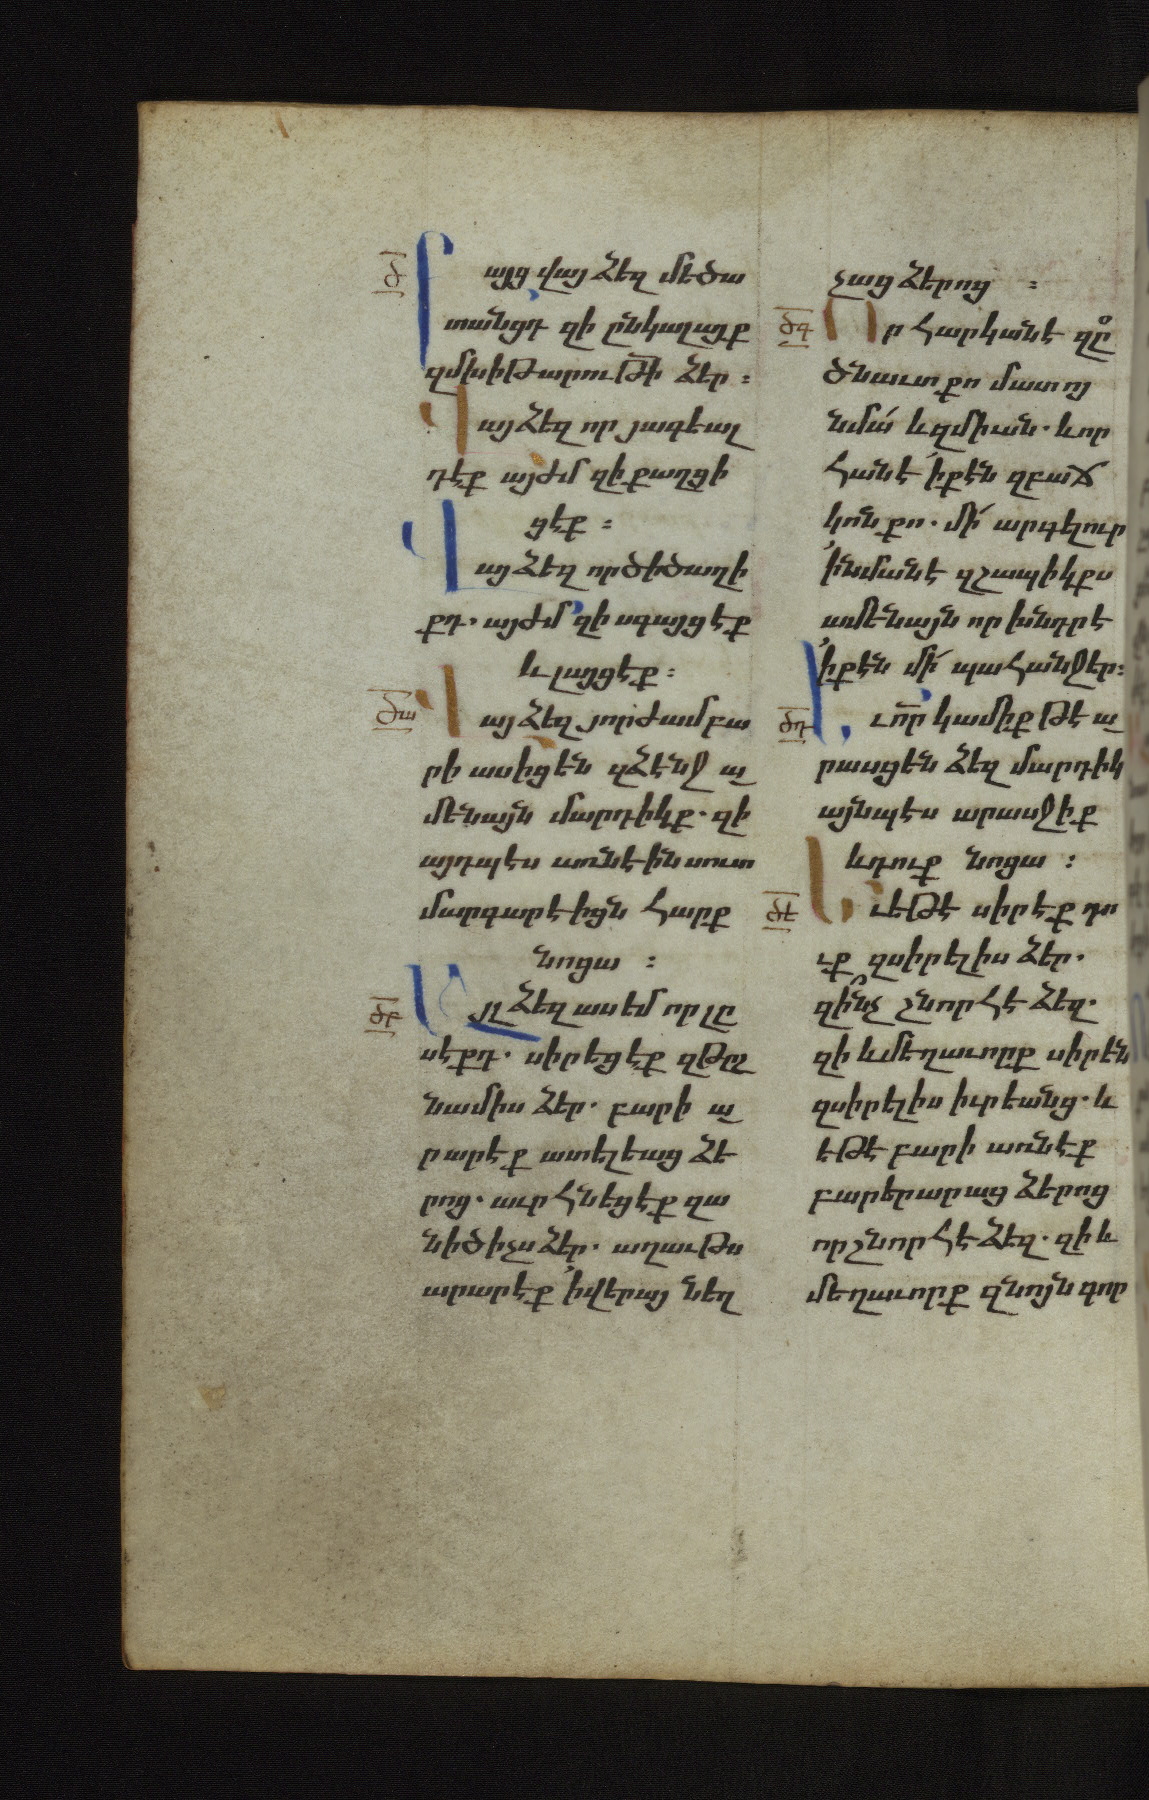 ծ
Բայց վայ ձեզ մեծա
տանցդ զի ընկալայք
զմխիթարութի ձեր ։
Վայ ձեզ որ յագեալ
դէք այժմ զի քաղցի
ցէք ։
Վայ ձեզ որ ծիծաղի
քդ․ այժմ զի սգայցէք
և լացցէք ։
ծա
Վայ ձեզ յորժամ բա
րի ասիցեն զձէնջ ա
մենայն մարդիկք․ զի
այդպես առնէին սուտ
մարգարէիցն հարք
նոցա ։
ծբ
Այլ ձեզ ասեմ որ լը
սէքդ․ սիրեցէք զթըշ
նամիս ձեր․ բարի ա
րարէք ատելեաց ձե
րոց․ աւրհնեցէք զա
նիծիչս ձեր․ աղաւթս
արարէք ի վերայ նեղ
չաց ձերոց ։
ծգ
Որ հարկանէ զը
ծնաւտ քո մատո
նմա և զմիւսն․ և որ
հանէ ի քէն զբաճ
կոն քո․ մի արգելուր
ի նմանէ զշապիկքս
ամենայն որ խնդրէ
ի քէն մի պահանջեր ։
ծդ
Եւ որ կամիք թէ ա
րասցեն ձեզ մարդիկ
այնպես արասջիք
և դուք նոցա ։
ծե
Եւ եթէ սիրէք դո
ւք զսիրելիս ձեր․
զինչ շնորհ է ձեզ․
զի և մեղաւորք սիրեն
զսիրելիս իւրեանց․ և
եթէ բարի առնէք
բարերարաց ձերոց
որ շնորհ է ձեզ․ զի և
մեղաւորք զնոյն գոր